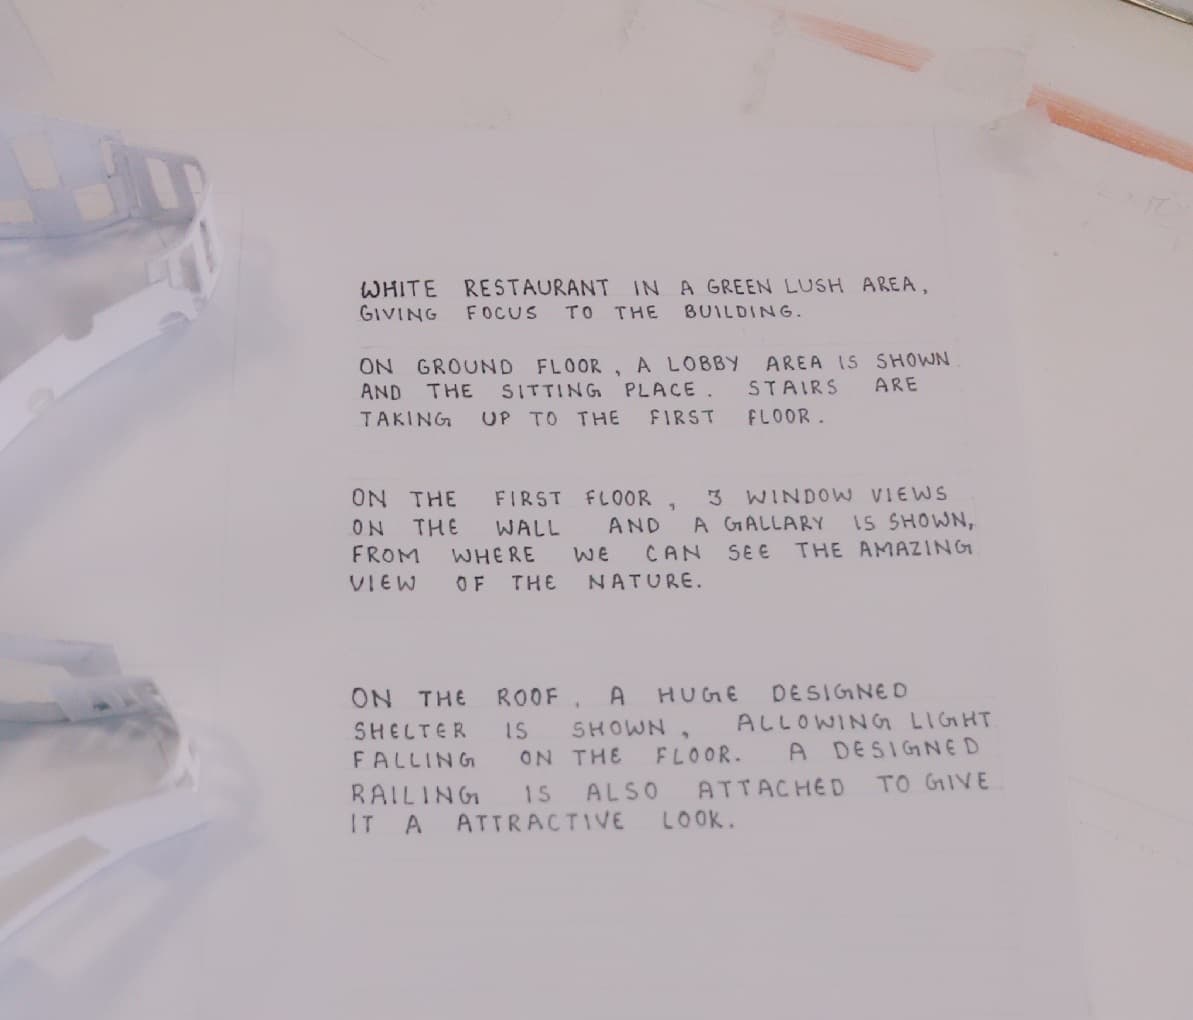 WHITE RESTAURANT IN A GREEN LUSH AREA,
GIVING FOCUS TO THE BUILDING.
ON GROUND FLOOR, A LOBBY AREA IS SHOWN
AND THE SITTING PLACE. STAIRS ARE
TAKING UP TO THE FIRST FLOOR.
ON THE FIRST FLOOR, 3 WINDOW VIEWS
ON THE WALL AND A GALLARY IS SHOWN,
FROM WHERE WE CAN SEE THE AMAZING
VIEW OF THE NATURE.
ON THE ROOF, A HUGE DESIGNED
SHELTER IS SHOWN, ALLOWING LIGHT
FALLING ON THE FLOOR. A DESIGNED
RAILING IS ALSO ATTACHED TO GIVE
IT A ATTRACTIVE LOOK.